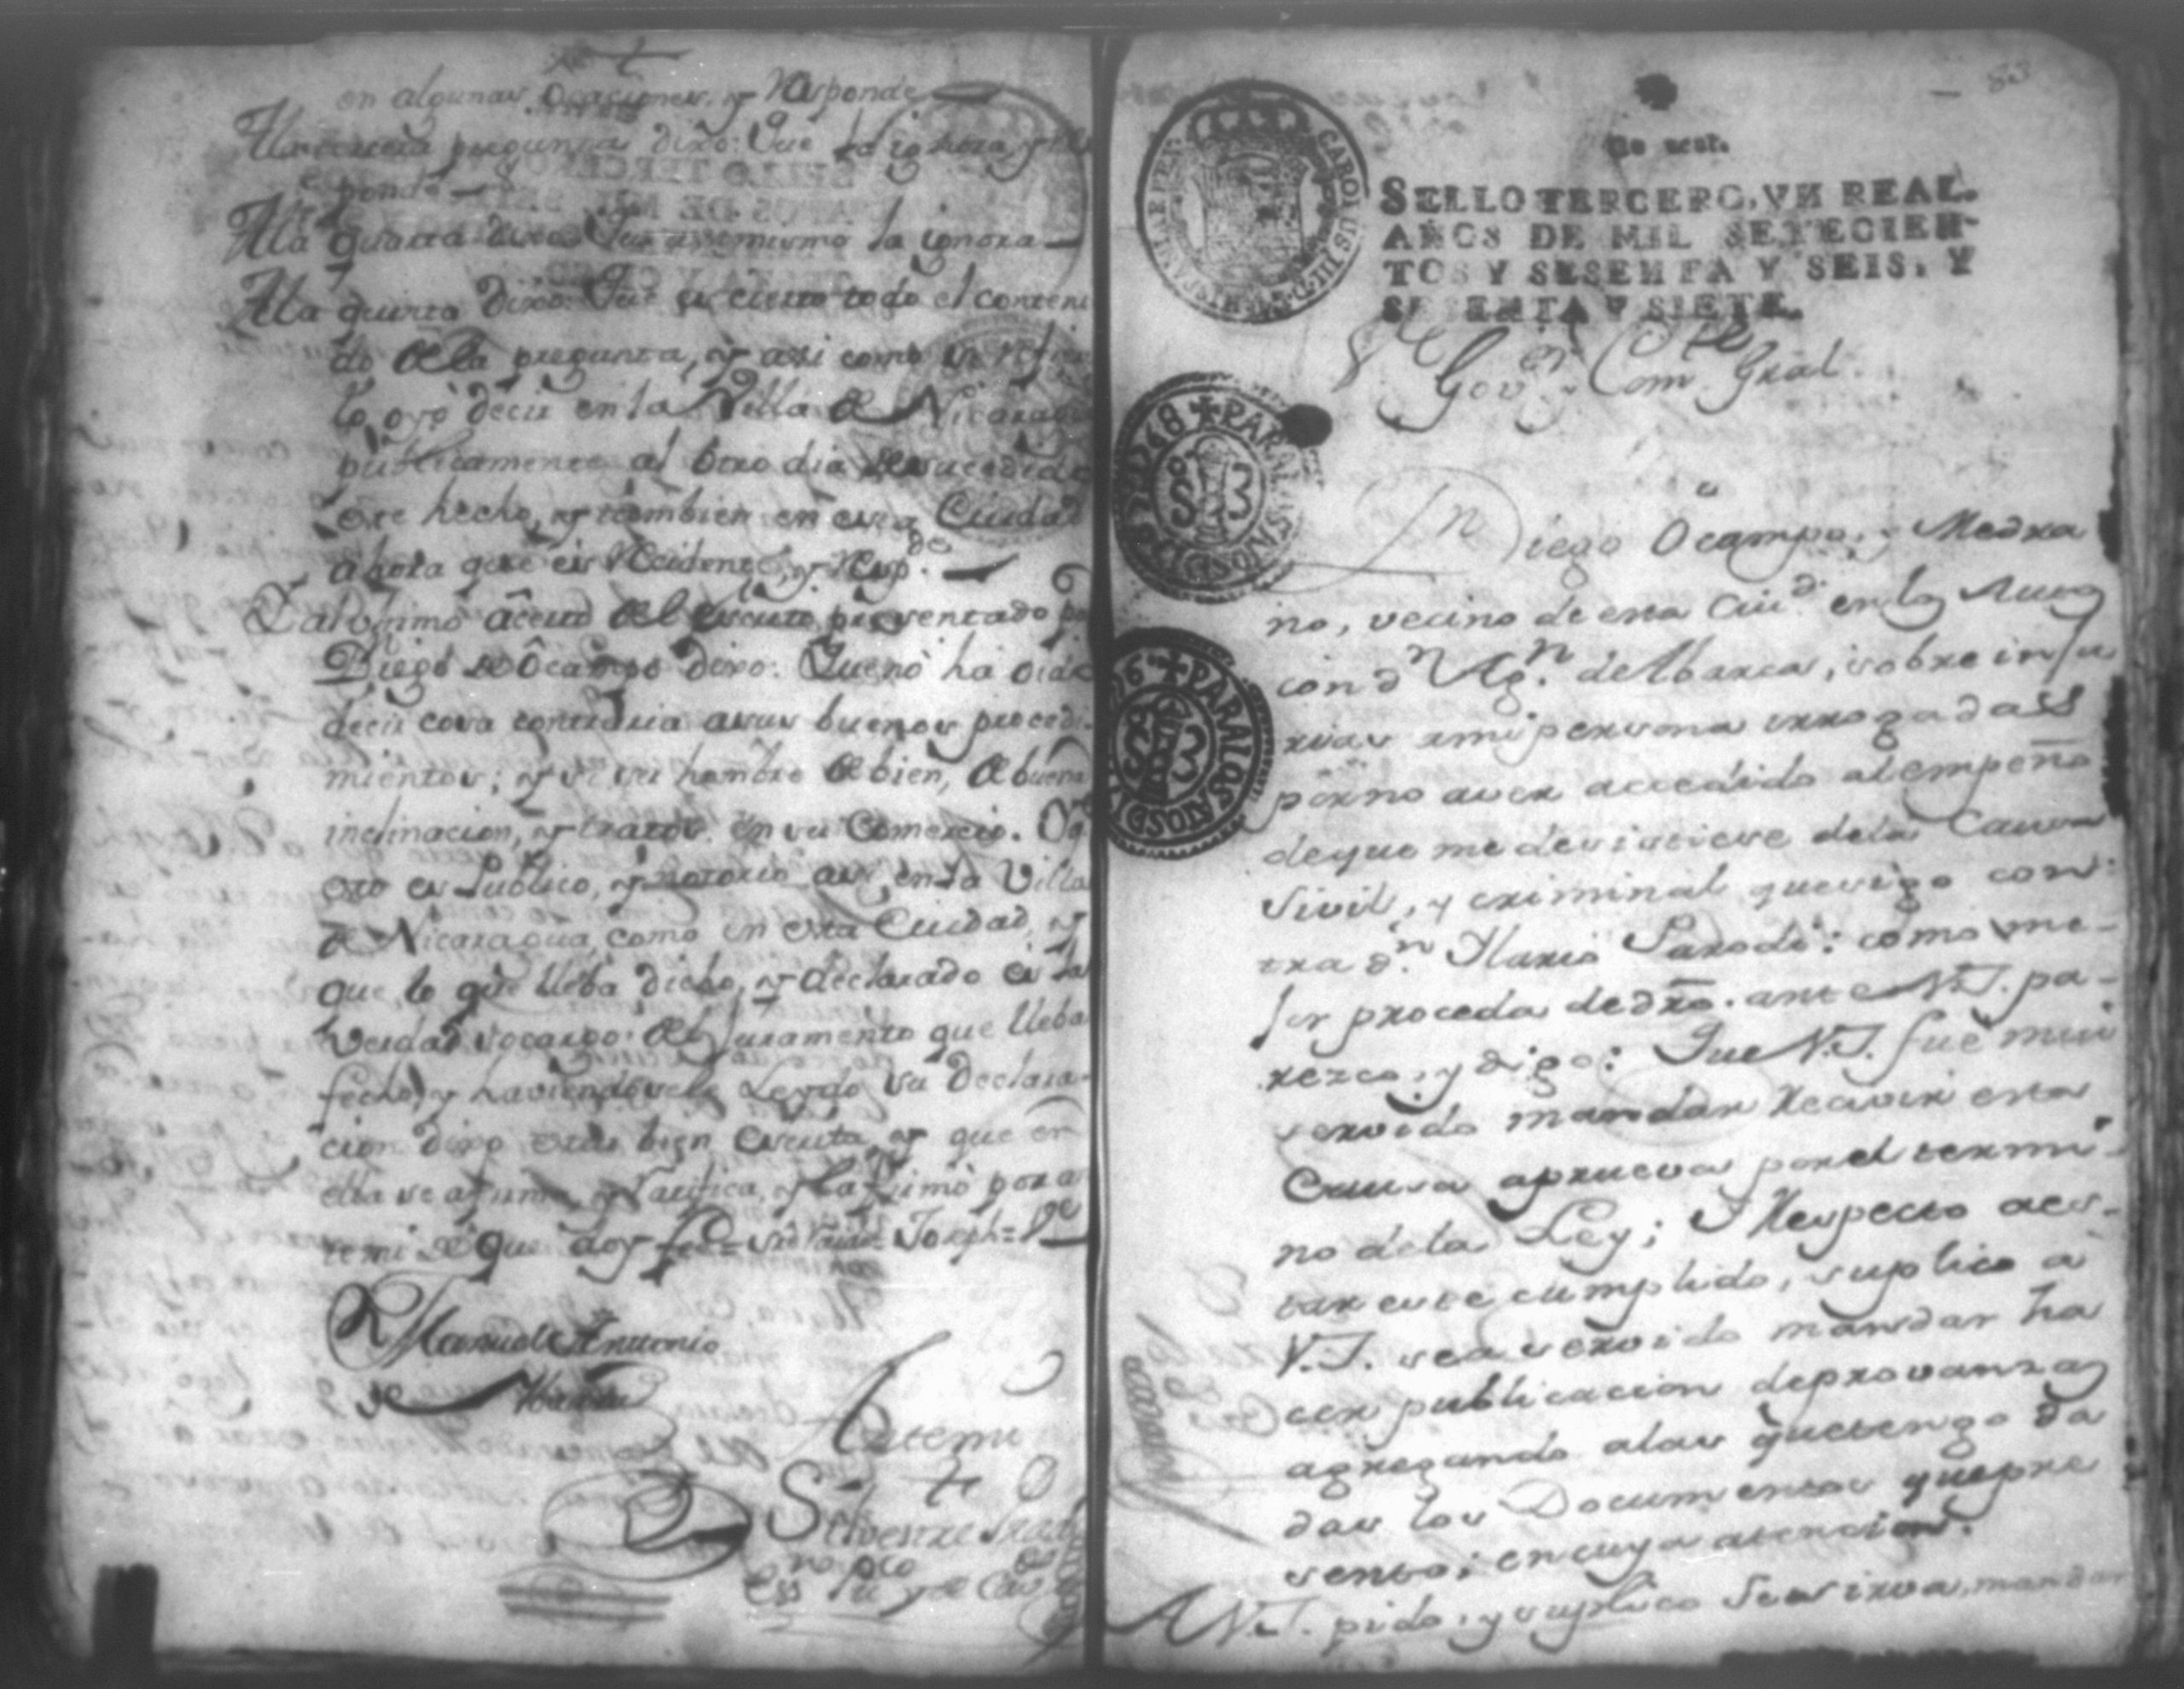 en algunas Ocasiones, y Responde
A la tercera pregunta dixo: Que la ignora, y res
ponde
A la quarta dixo: Que assimismo la ignora
A la quinta Dixo: Que es cierto todo el conteni
do de la pregunta, y asi como se refiere
lo oyó decir en la Villa de Nicaragua
publicamente al otro dia de sucedido
este hecho, y tambien en esta Ciudad
ahora que es Recidente, y Resp.do
Y al ultimo acerca del Escrito presentado po
Diego de Ocampo dixo: Que no ha oido
decir cosa contraria a sus buenos procedi
mientos; y si ser hombre de bien, de buena
inclinacion, y tratos en su Comercio. Y q.e
esto es publico, y notorio asi en la Villa
de Nicaragua, como en esta Ciudad, y
que lo que lleba dicho, y declarado es la
Verdad socargo del Juramento que lleba
fecho, y haviendosele Leydo su Declara-
cion dixo estar bien Escrita, y que en
ella se afirma, y ratifica, y la firmó por a
te mi de que doy fee = Joseph = V.e
Manuel Antonio
de
Ante mi
Silvestre
Ess.no Pu.co y de Cav.do
83
Un real.
SELLO TERCERO, VN REAL.
AÑOS DE MIL SETECIEN-
TOS Y SESENTA Y SEIS, Y
SESENTA Y SIETE.
CAROLUS III D G HISPANIAR REX
S.r Gov.or y Com.te Gral.
PARA LOS AÑOS D 1767 Y D 68
S 3
PARA LOS AÑOS D
S 3
Dn Diego Ocampo, y Medra
no, vecino de esta Ciud.d en los Autos
con d.n Ag.n de Abarca, sobre inju
rias a mi persona irrogadas
por no aver accedido al empeño
de que me desistiese de la Causa
Sivil, y criminal que sigo con-
tra d.n Ilario Parodi: como me-
jor proceda de dro. ante V.S. pa-
rezco, y digo: Que V.S. fue mui
servido mandar Recivir esta
Causa a prueva por el termi-
no de la Ley; y Respecto a es-
tar este cumplido, suplico a
V.S. sea servido mandar ha
cer publicacion de provanzas
agregando a las que tengo da
das los Documentos que pre
sento; en cuya atencion.
A V.S. pido, y suplico se sirva mandar